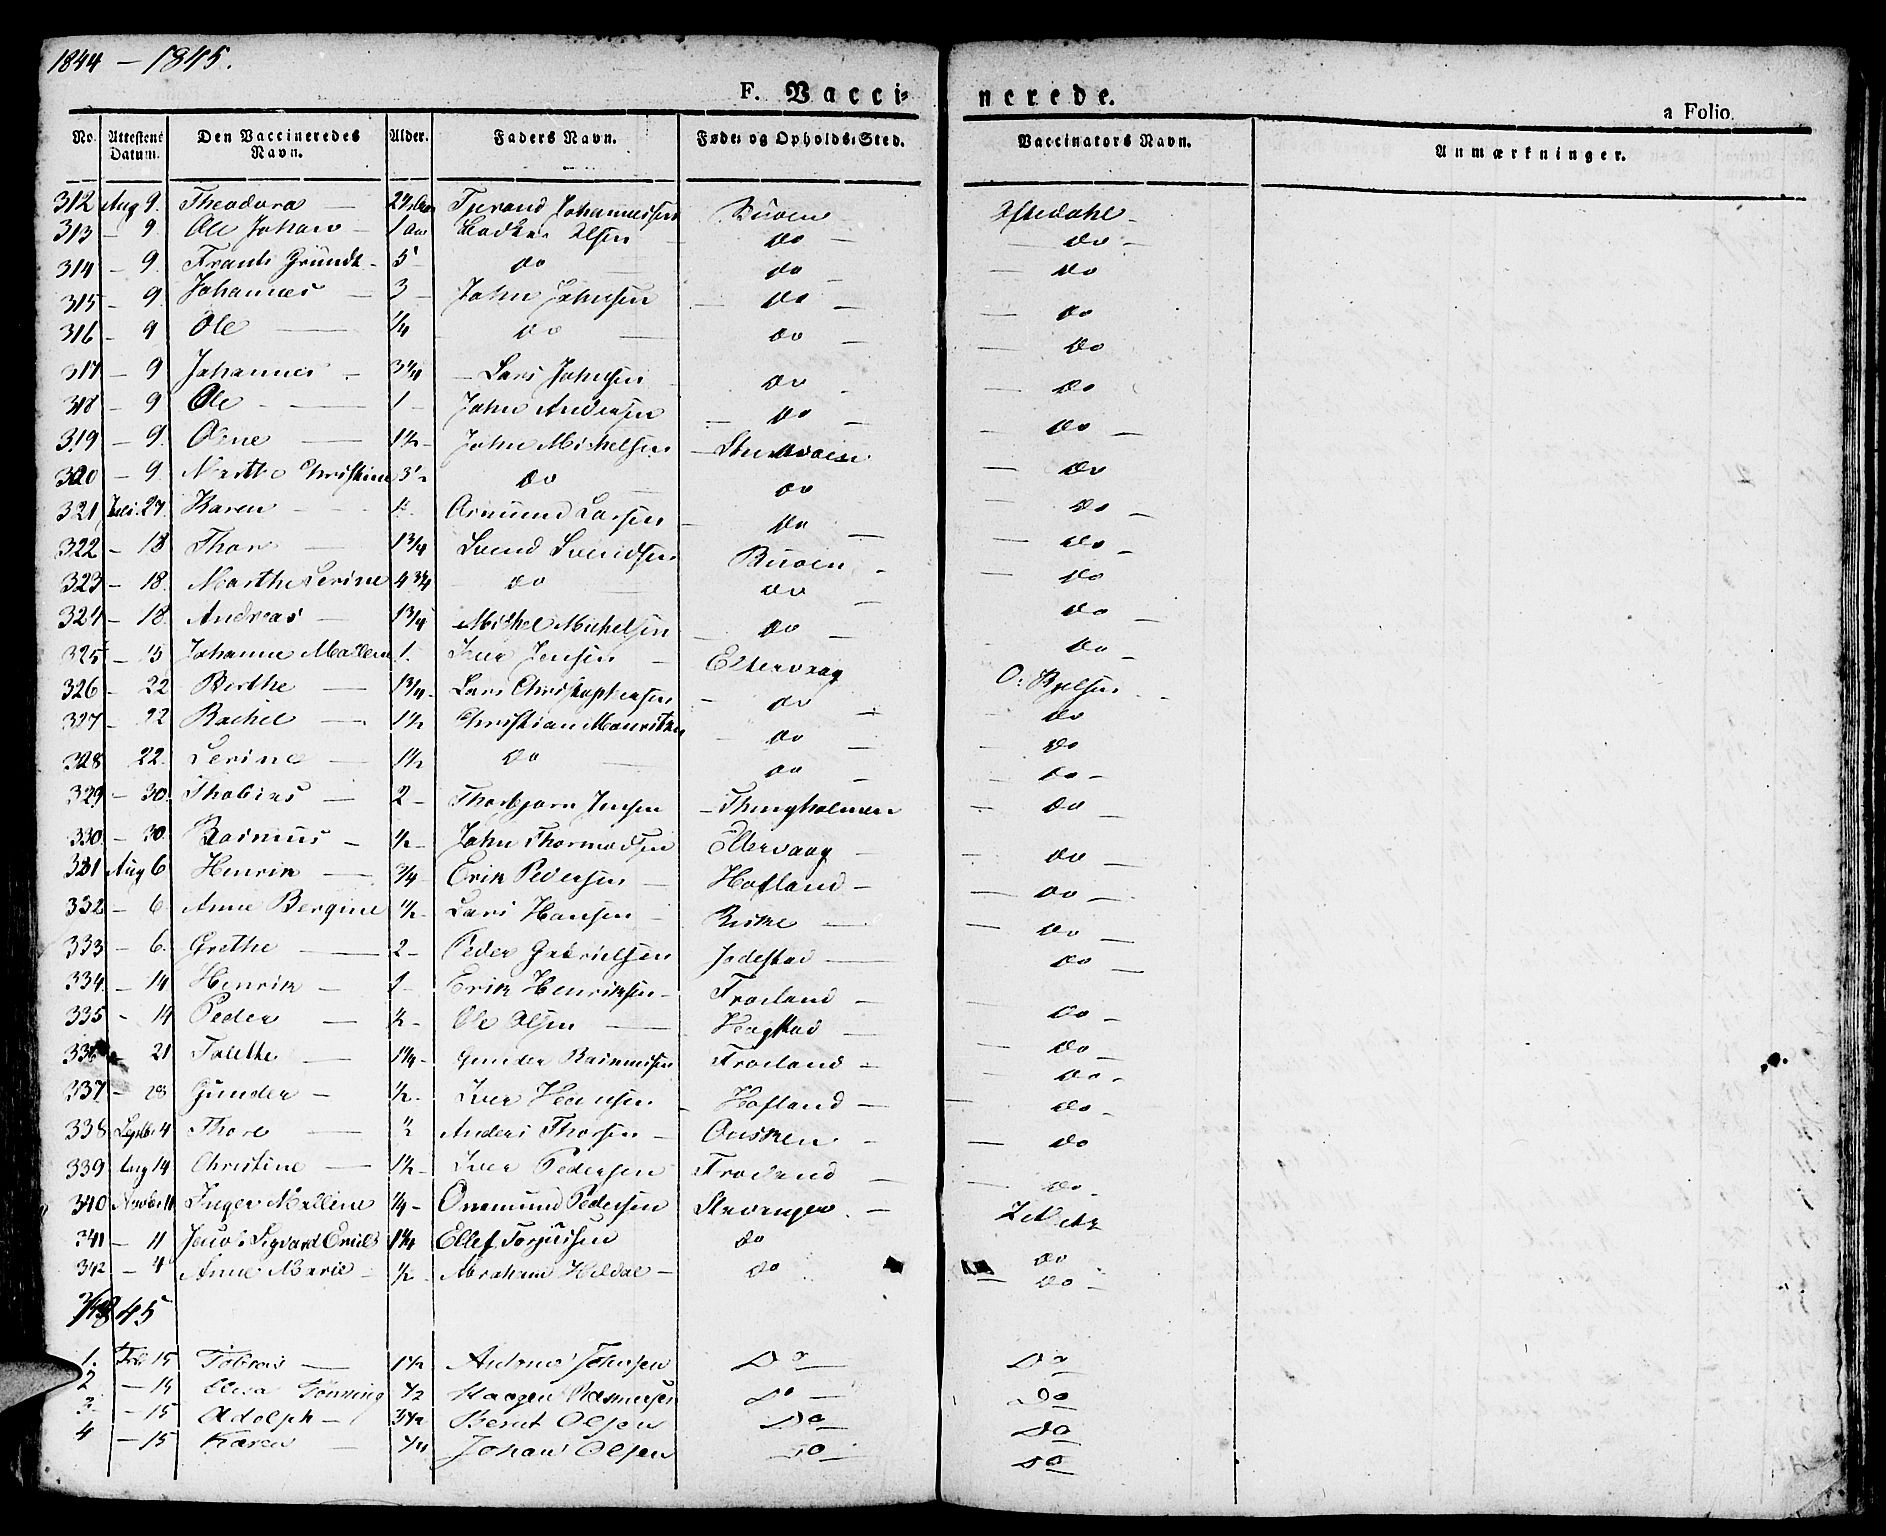 1844 – 1845.
F. Vaccinerede. a Folio.
No. Attestens Datum. Den Vaccineredes Navn. Alder. Faders Navn. Føde- og Opholds-Sted. Vaccinators Navn. Anmærkninger.
312 Aug 9. Theodora – Tjerand Johannessen Buøen
313 – 9 Ole Johan – 1 Olsen do – do –
314 – 9. Frants Gründt – 5 do do – do
315 – 9. Johannes – 3 – John Johnsen – do – – do
316 – 9 Ole – 1/4 do do – – do
317 – 9 Johannes – 3 1/4 – Lars Johnsen do – do
318 – 9 Ole – 1 – John Andersen – do – – do –
319 – 9. Olene – 1 1/2 – John Michelsen – – do
320 – 9. Marthe Christine 3 1/2 do do – do –
321 Juli 27. Karen – Asmund Larsen – do – – do –
322 – 18 Thor – 1 3/4 Svend Svendsen Buøen – – do
323 – 18. Marthe Serine 4 3/4 do do – do –
324 – 18. Andreas – 1 3/4 Michel Michelsen – do – do –
325 – 15 Johanne Mallene 1. Iver Jensen – Eltervaag O:
326 – 22 Berthe – 1 3/4 – Lars Christophersen – do – – do
327 – 22 Rachel – 1 1/2 Christian Mauritzen – do – – do
328 22. Serine – 1 1/2 do do – do –
329 – 30. Thobias – 2 – Thorbjørn Jensen – Thingholmen – do –
330 – 30. Rasmus – 1/2 – John Thormodsen Eltervaag – – do –
331 Aug 6 Henrik – 3/4 Erik Pedersen – Hafland – – do –
332 – 6 Anne Bergine 1/2 – Lars Hansen – Riske – – do –
333 – 6. Grethe – 2 – Peder Gabrielsen Jadestad – do –
334 – 14 Henrik – 1 – Erik Henriksen – Frøiland – – do –
335 – 14 Peder – 1/2 – Ole Olsen – Hagstad – – do –
336 21 Talette – 1 1/4 – Gunder Rasmussen Frøiland – – do –
337 – 28 Gunder – 1/2 – Iver Hansen – Hafland – – do –
338 Septbr 4 Thore – 1/2 Anders Thorsen – – – do
339 Aug 14 Christine – 1 1/2 – Iver Pedersen Frøiland – – do –
340 Novbr 11 Inger Mallene 1/4 – Ommund Pedersen Stavanger. – Zetlitz
341 – 11 Jacob Sigvard Emil 1 1/4 Ellef Torjusen do do
342 – 4 Anne Marie – 1/2 – Abraham Hildal – do – do –
1845
1. Feb 15 Tobias – 1 1/2 Johnsen Do – Do
2 – 15 Elisa Tønning 1/2 Haagen Rasmusen Do – Do
3. – 15 Adolph – 3 1/2 Bernt Olsen Do Do
4 – 15 Karen – 1/4 Johan Olsen Do Do